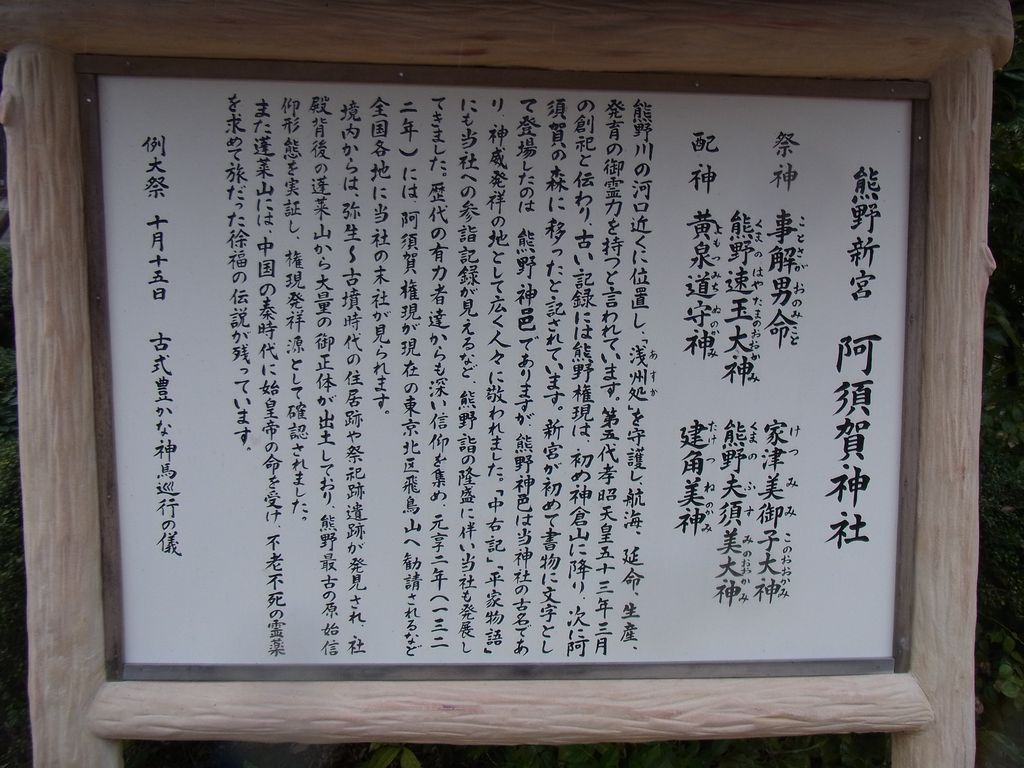 熊野新宮　阿須賀神社
祭神　事解男命　家津美御子大神
ことさかおのみこと　けつみみこのおおかみ
熊野速玉大神　熊野夫須美大神
くまのはやたまのおおかみ　くまのふすみのおおかみ
配神　黄泉道守神　建角美神
よもつみちもりのかみ　たけつぬみのかみ
熊野川の河口近くに位置し、「浅州処」を守護し、航海、延命、生産、
あすか
発育の御霊力を持つと言われています。第五代孝昭天皇五十三年三月
の創祀と伝わり、古い記録には熊野権現は、初め神倉山に降り、次に阿
須賀の森に移ったと記されています。新宮が初めて書物に文字とし
て登場したのは　熊野神邑でありますが、熊野神邑は当神社の古名であ
り、神威発祥の地として広く人々に敬われました。「中右記」「平家物語」
にも当社への参詣記録が見えるなど、熊野詣の隆盛に伴い当社も発展し
てきました。歴代の有力者達からも深い信仰を集め、元享二年（一三二
二年）には、阿須賀権現が現在の東京北区飛鳥山へ勧請されるなど
全国各地に当社の末社が見られます。
境内からは、弥生〜古墳時代の住居跡や祭祀跡遺跡が発見され、社
殿背後の蓬莱山から大量の御正体が出土しており、熊野最古の原始信
仰形態を実証し、権現発祥源として確認されました。
また蓬莱山には、中国の秦時代に始皇帝の命を受け、不老不死の霊薬
を求めて旅だった徐福の伝説が残っています。
例大祭　十月十五日　古式豊かな神馬巡行の儀